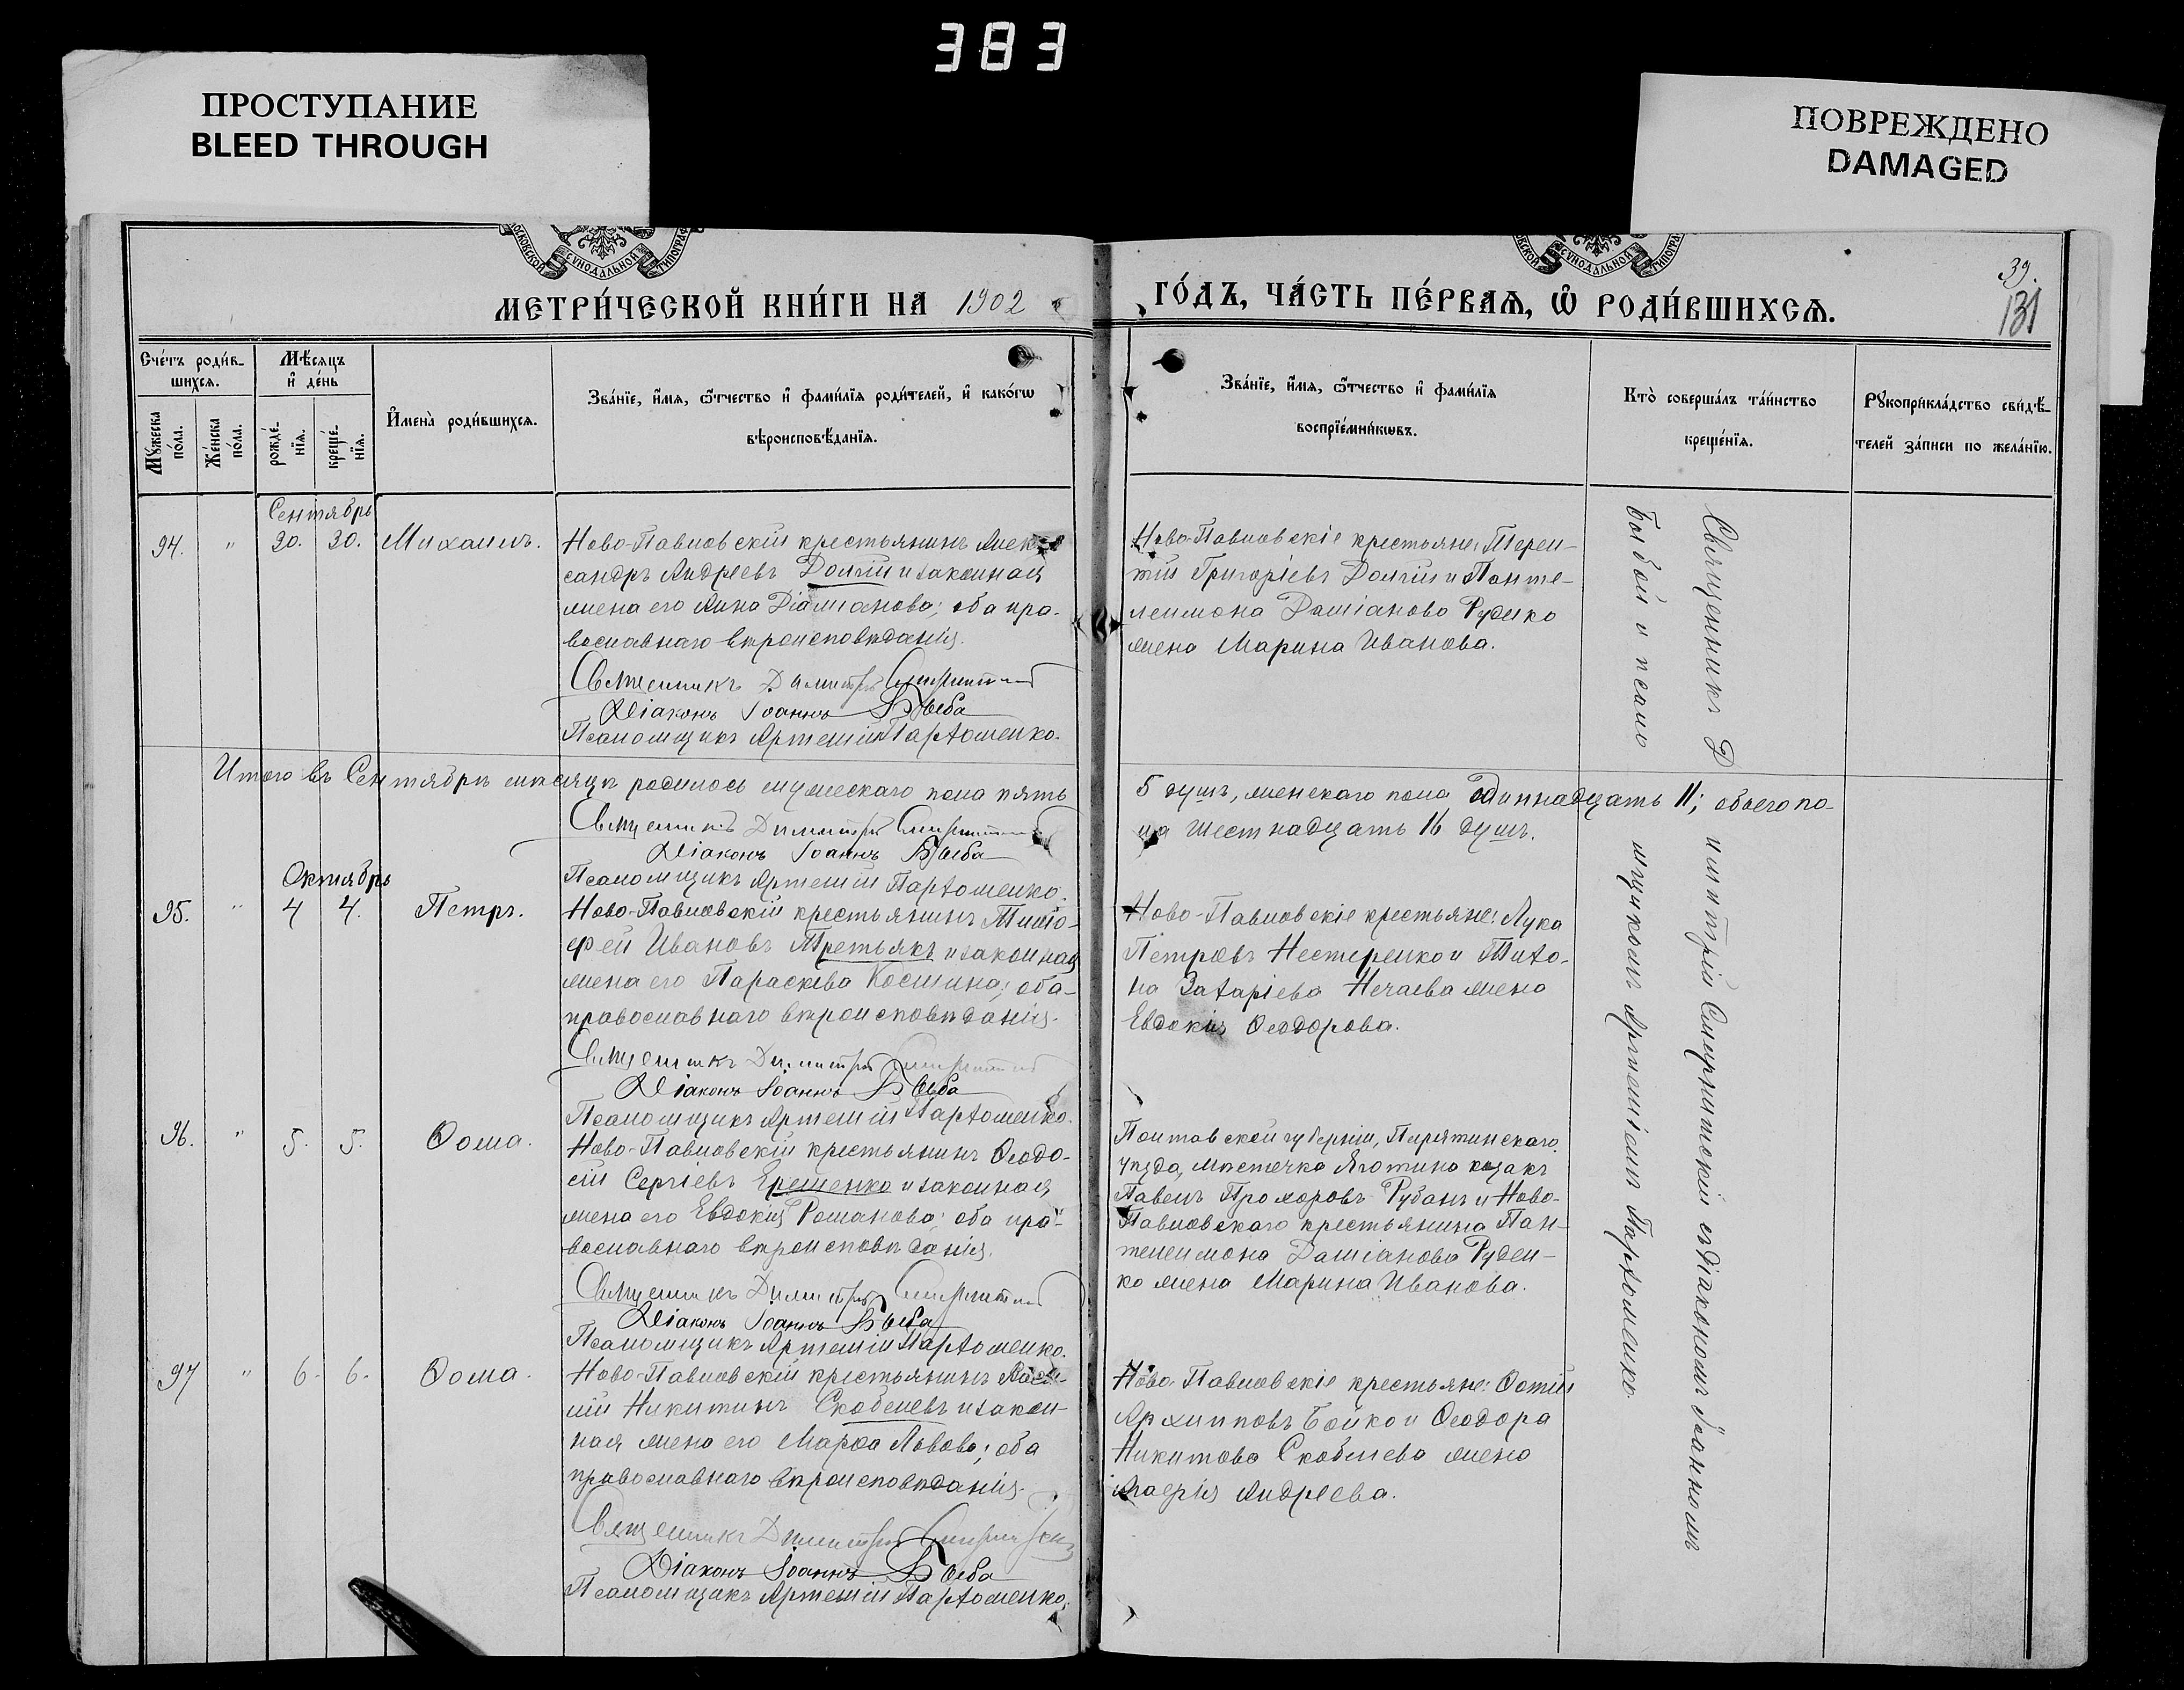 383
ПРОСТУПАНИЕ
BLEED THROUGH
ПОВРЕЖДЕНО
DAMAGED
МЕТРИ́ЧЕСКОЙ КНИ́ГИ НА 1902
ГО́ДЪ, ЧА́СТЬ ПЕ́РВАѦ, Ѡ РОДИ́ВШИХСѦ.
39.
131
Сче́тъ роди́в-
шихсѧ.
Мѣ́сѧцъ
и҆ де́нь
Мꙋ́жеска
по́ла.
Же́нска
по́ла.
рожде́-
нїѧ.
креще́-
нїѧ.
И҆мена̀ роди́вшихсѧ.
Зва́нїе, и҆́мѧ, ѻ҆́тчество и҆ фами́лїѧ роди́телей, и҆ како́гѡ
вѣроисповѣ́данїѧ.
Зва́нїе, и҆́мѧ, ѻ҆́тчество и҆ фами́лїѧ
воспрїе́мникѡвъ.
Кто̀ соверша́лъ та́инство
креще́нїѧ.
Рꙋкоприкла́дство свидѣ́-
телей за́писи по жела́нїю.
Сентябрь
94. " 30. 30. Михаилъ.
Ново-Павловскій крестьянинъ Алек-
сандръ Андреевъ Долгій и законная
жена его Анна Даміанова; оба пра-
вославнаго вѣроисповѣданія.
Священникъ Димитрій
Діаконъ Іоаннъ
Псаломщикъ Артемій Пархоменко.
Ново-Павловскіе крестьяне: Терен-
тій Григоріевъ Долгій и Панте-
леимона Даміанова Руденко
жена Марина Иванова.
Итого въ Сентябрѣ мѣсяцѣ родилось мужескаго пола пять
5 душъ, женскаго пола одиннадцать 11; обоего по-
ла шестнадцать 16 душъ.
Священникъ Димитрій
Діаконъ Іоаннъ
Псаломщикъ Артемій Пархоменко.
Октябрь
95. " 4 4. Петръ.
Ново-Павловскій крестьянинъ Тимо-
фей Ивановъ Третьякъ и законная
жена его Параскева Космина; оба
православнаго вѣроисповѣданія.
Священникъ Димитрій
Діаконъ Іоаннъ
Псаломщикъ Артемій Пархоменко.
Ново-Павловскіе крестьяне: Лука
Петровъ Нестеренко и Тихо-
на Захаріева Нечаева жена
Евдокія Ѳеодорова.
96. " 5. 5. Ѳома.
Ново-Павловскій крестьянинъ Ѳеодо-
сій Сергіевъ Ерешенко и законная
жена его Евдокія Романова; оба пра-
вославнаго вѣроисповѣданія.
Священникъ Димитрій
Діаконъ Іоаннъ
Псаломщикъ Артемій Пархоменко.
Полтавской губерніи, Пирятинскаго
уѣзда, мѣстечка Яготина козакъ
Павелъ Прохоровъ Рубанъ и Ново-
Павловскаго крестьянина Пан-
телеимона Даміанова Руден-
ко жена Марина Иванова.
97 " 6. 6. Ѳома.
Ново-Павловскій крестьянинъ Васи-
лій Никитинъ Скобелевъ и закон-
ная жена его Марѳа Львова; оба
православнаго вѣроисповѣданія.
Священникъ Димитрій
Діаконъ Іоаннъ
Псаломщикъ Артемій Пархоменко.
Ново-Павловскіе крестьяне: Фотій
Архипповъ Бойко и Ѳеодора
Никитова Скобелева жена
Андреева.
Священникъ Димитрій Смирнитскій съ діакономъ Іоанномъ
и псаломщикомъ Артеміемъ Пархоменко